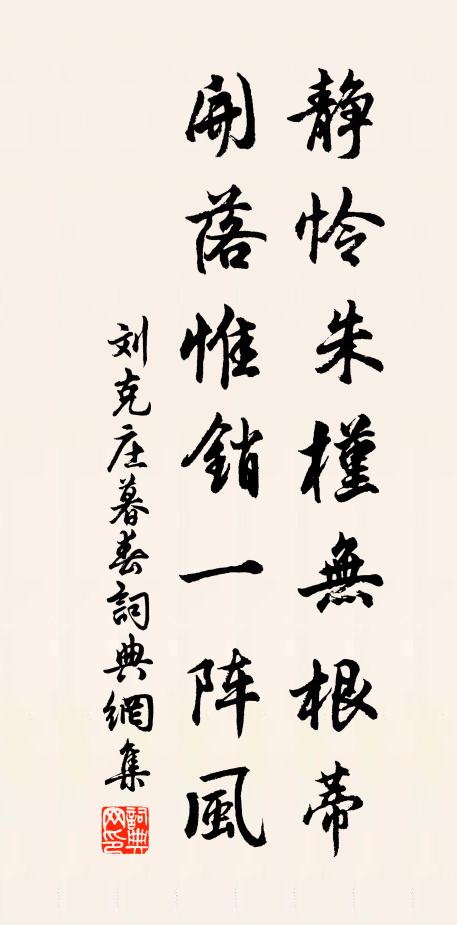 静怜朱槿無根蒂
開落惟銷一阵風
刘克庄暮春詞典網集
詞典網印